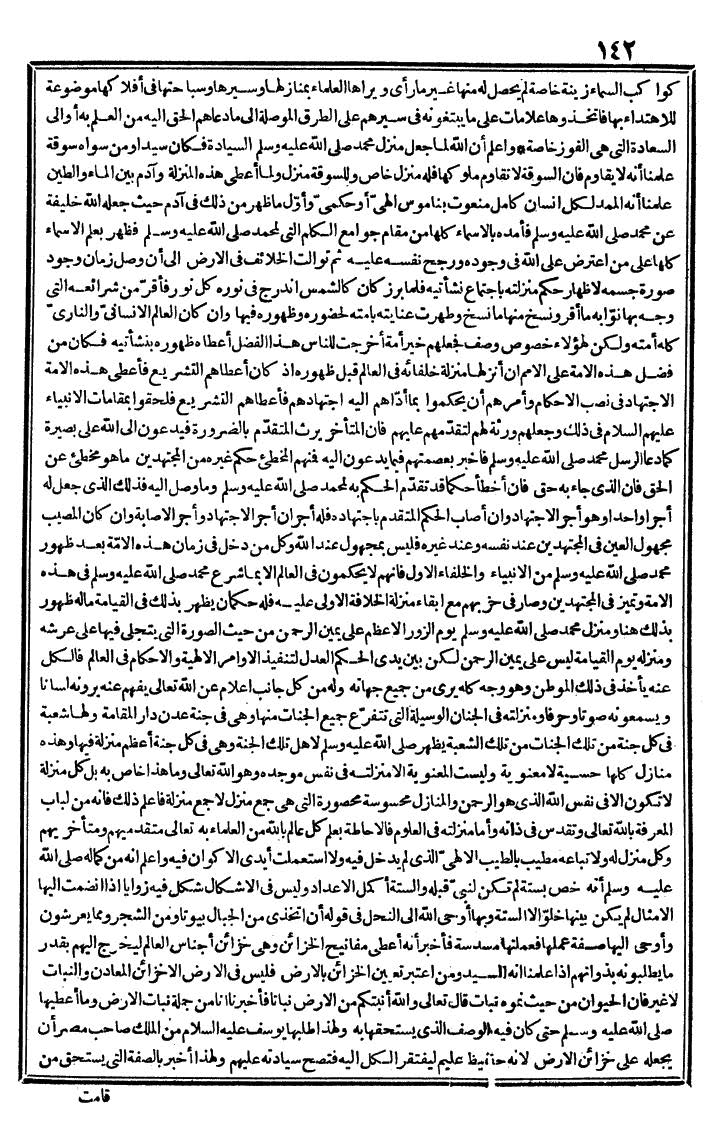 ١٤٢
كواكب السماء زينة خاصة لم يحصل له منها غير ما رأى ويراها العلماء بمنازلها وسيرها وسباحتها فى أفلاكها موضوعة
للاهتداء بها فاتخذوها علامات على ما يبتغونه فى سيرهم على الطرق الموصلة الى ما دعاهم الحق اليه من العلم به أو الى
السعادة التى هى الفوز خاصة * واعلم أن الله لما جعل منزل محمد صلى الله عليه وسلم السيادة فكان سيدا ومن سواه سوقة
علمنا أنه لا يقاوم فان السوقة لا تقاوم ملوكها فله منزل خاص وللسوقة منزل ولما أعطى هذه المنزلة وآدم بين الماء والطين
علمنا أنه الممد لكل انسان كامل منعوت بناموس الهىّ أو حكمىّ وأوّل ما ظهر من ذلك فى آدم حيث جعله الله خليفة
عن محمد صلى الله عليه وسلم فأمده بالاسماء كلها من مقام جوامع الكلم التى لمحمد صلى الله عليه وسلم فظهر بعلم الاسماء
كلها على من اعترض على الله فى وجوده ورجح نفسه عليه ثم توالت الخلائف فى الارض الى أن وصل زمان وجود
صورة جسمه لاظهار حكم منزلته باجتماع نشأتيه فلما برز كان كالشمس اندرج فى نوره كل نور فأقرّ من شرائعه التى
وجه بها نوّابه ما أقر ونسخ منها ما نسخ وظهرت عنايته بامته لحضوره وظهوره فيها وان كان العالم الانسانىّ والنارىّ
كله أمته ولكن لهؤلاء خصوص وصف فجعلهم خير أمة أخرجت للناس هذا الفضل أعطاه ظهوره بنشأتيه فكان من
فضل هذه الامة على الامم ان أنزلها منزلة خلفائه فى العالم قبل ظهوره اذ كان أعطاهم التشريع فأعطى هذه الامة
الاجتهاد فى نصب الاحكام وأمرهم أن يحكموا بما أدّاهم اليه اجتهادهم فأعطاهم التشريع فلحقوا بمقامات الانبياء
عليهم السلام فى ذلك وجعلهم ورثة لهم لتقدّمهم عليهم فان المتأخر يرث المتقدّم بالضرورة فيدعون الى الله على بصيرة
كما دعا الرسل محمد صلى الله عليه وسلم فأخبر بعصمتهم فيما يدعون اليه فمنهم المخطئ حكم غيره من المجتهدين ما هو مخطئ عن
الحق فان الذى جاء به حق فان أخطأ حكما قد تقدّم الحكم به لمحمد صلى الله عليه وسلم وما وصل اليه فذلك الذى جعل له
أجرا واحدا وهو أجر الاجتهاد وان أصاب الحكم المتقدم باجتهاده فله أجران أجر الاجتهاد وأجر الاصابة وان كان المصيب
مجهول العين فى المجتهدين عند نفسه وعند غيره فليس بمجهول عند الله وكل من دخل فى زمان هذه الامّة بعد ظهور
محمد صلى الله عليه وسلم من الانبياء والخلفاء الاول فانهم لا يحكمون فى العالم الا بما شرع محمد صلى الله عليه وسلم فى هذه
الامة وتميز فى المجتهدين وصار فى حزبهم مع ابقاء منزلة الخلافة الاولى عليه فله حكمان يظهر بذلك فى القيامة ماله ظهور
بذلك هنا ومنزل محمد صلى الله عليه وسلم يوم الزور الاعظم على يمين الرحمن من حيث الصورة التى يتجلى فيها على عرشه
ومنزله يوم القيامة ليس على يمين الرحمن لكن بين يدى الحكم العدل لتنفيذ الاوامر الالهية والاحكام فى العالم فالكل
عنه يأخذ فى ذلك الموطن وهو وجه كله يرى من جميع جهاته وله من كل جانب اعلام عن الله تعالى يفهم عنه يرونه لسانا
ويسمعونه صوتا وحرفا ومنزلته فى الجنان الوسيلة التى تتفرّع جميع الجنات منها وهى فى جنة عدن دار المقامة ولها شعبة
فى كل جنة من تلك الجنات من تلك الشعبة يظهر صلى الله عليه وسلم لاهل تلك الجنة وهى فى كل جنة أعظم منزلة فيها وهذه
منازل كلها حسية لا معنوية وليست المعنوية الا منزلته فى نفس موجده وهو الله تعالى وما هذا خاص به بل كل منزلة
لا تكون الا فى نفس الله الذى هو الرحمن والمنازل محسوسة محصورة التى هى جمع منزل لا جمع منزلة فاعلم ذلك فانه من لباب
المعرفة بالله تعالى وتقدس فى ذاته وأما منزلته فى العلوم فالاحاطة بعلم كل عالم بالله من العلماء به تعالى متقدميهم ومتأخريهم
وكل منزل له ولاتباعه مطيب بالطيب الالهىّ الذى لم يدخل فيه ولا استعملت أيدى الاكوان فيه واعلم انه من كماله صلى الله
عليه وسلم أنه خص بستة لم تكن لنبىّ قبله والستة أكمل الاعداد وليس فى الاشكال شكل فيه زوايا اذا انضمت اليها
الامثال لم يكن بينها خلوّ الا الستة وبها أوحى الله الى النحل فى قوله أن اتخذى من الجبال بيوتا ومن الشجر ومما يعرشون
وأوحى اليها صفة عملها فعملتها مسدسة فأخبر أنه أعطى مفاتيح الخزائن وهى خزائن أجناس العالم ليخرج اليهم بقدر
ما يطلبونه بذواتهم اذ اعلمنا انه السيد ومن اعتبر تعيين الخزائن بالارض فليس فى الارض الاخزائن المعادن والنبات
لا غير فان الحيوان من حيث نموه نبات قال تعالى والله أنبتكم من الارض نباتا فأخبرنا انا من جملة نبات الارض وما أعطيها
صلى الله عليه وسلم حتى كان فيه الوصف الذى يستحقها به ولهذا طلبها يوسف عليه السلام من الملك صاحب مصر أن
يجعله على خزائن الارض لانه حفيظ عليم ليفتقر الكل اليه فتصح سيادته عليهم ولهذا أخبر بالصفة التى يستحق من
قامت